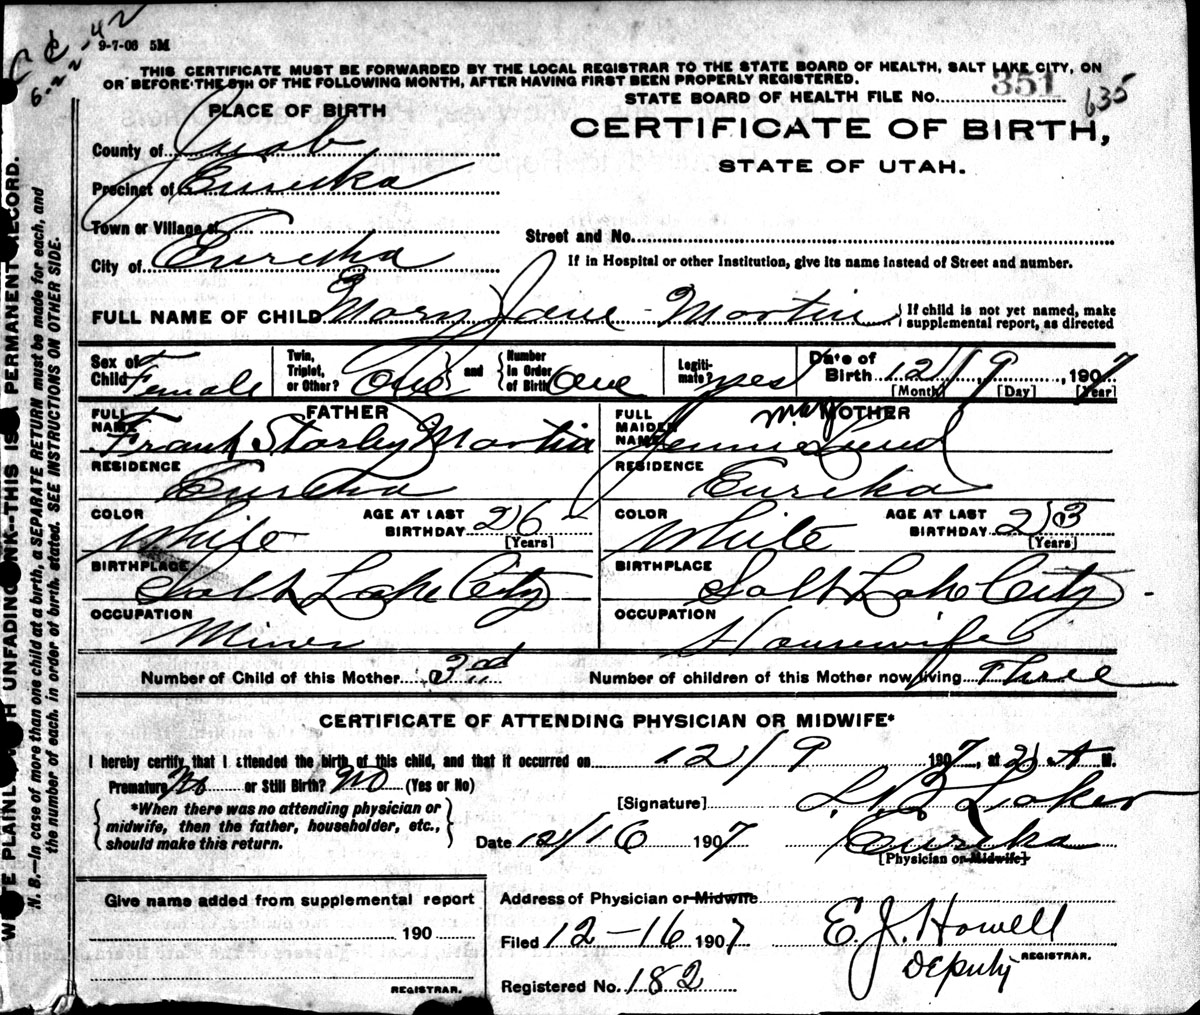 9-7-06 5M
THIS CERTIFICATE MUST BE FORWARDED BY THE LOCAL REGISTRAR TO THE STATE BOARD OF HEALTH, SALT LAKE CITY, ON
OR BEFORE THE 5TH OF THE FOLLOWING MONTH, AFTER HAVING FIRST BEEN PROPERLY REGISTERED.
STATE BOARD OF HEALTH FILE No. 351 635
PLACE OF BIRTH
CERTIFICATE OF BIRTH,
STATE OF UTAH.
County of Juab
Precinct of Eureka
Town or Village of
Street and No.
City of Eureka
If in Hospital or other Institution, give its name instead of Street and number.
FULL NAME OF CHILD Mary Jane Martin { If child is not yet named, make supplemental report, as directed
Sex of Child Female Twin, Triplet, or Other? One and Number in Order of Birth One Legiti- mate? yes Date of Birth 12/9, 1907
[Month] [Day] [Year]
FATHER MOTHER
FULL NAME Frank Martin FULL MAIDEN NAME Jennie May Lund
RESIDENCE Eureka RESIDENCE Eureka
COLOR White AGE AT LAST BIRTHDAY 26 [Years] COLOR White AGE AT LAST BIRTHDAY 23 [Years]
BIRTHPLACE Salt Lake City BIRTHPLACE Salt Lake City
OCCUPATION Miner OCCUPATION Housewife
Number of Child of this Mother 3rd Number of children of this Mother now living Three
CERTIFICATE OF ATTENDING PHYSICIAN OR MIDWIFE*
I hereby certify that I attended the birth of this child, and that it occurred on 12/9 1907, at 2 A M.
Premature No or Still Birth? No (Yes or No)
*When there was no attending physician or
midwife, then the father, householder, etc.,
should make this return.
[Signature]
Date 12/16 1907 Eureka
[Physician or Midwife]
Give name added from supplemental report
190
REGISTRAR.
Address of Physician or Midwife
Filed 12-16 1907 E. J. Howell
Deputy REGISTRAR.
Registered No. 182
WRITE PLAINLY WITH UNFADING INK--THIS IS A PERMANENT RECORD.
N. B.—In case of more than one child at a birth, a SEPARATE RETURN must be made for each, and
the number of each, in order of birth, stated. SEE INSTRUCTIONS ON OTHER SIDE.